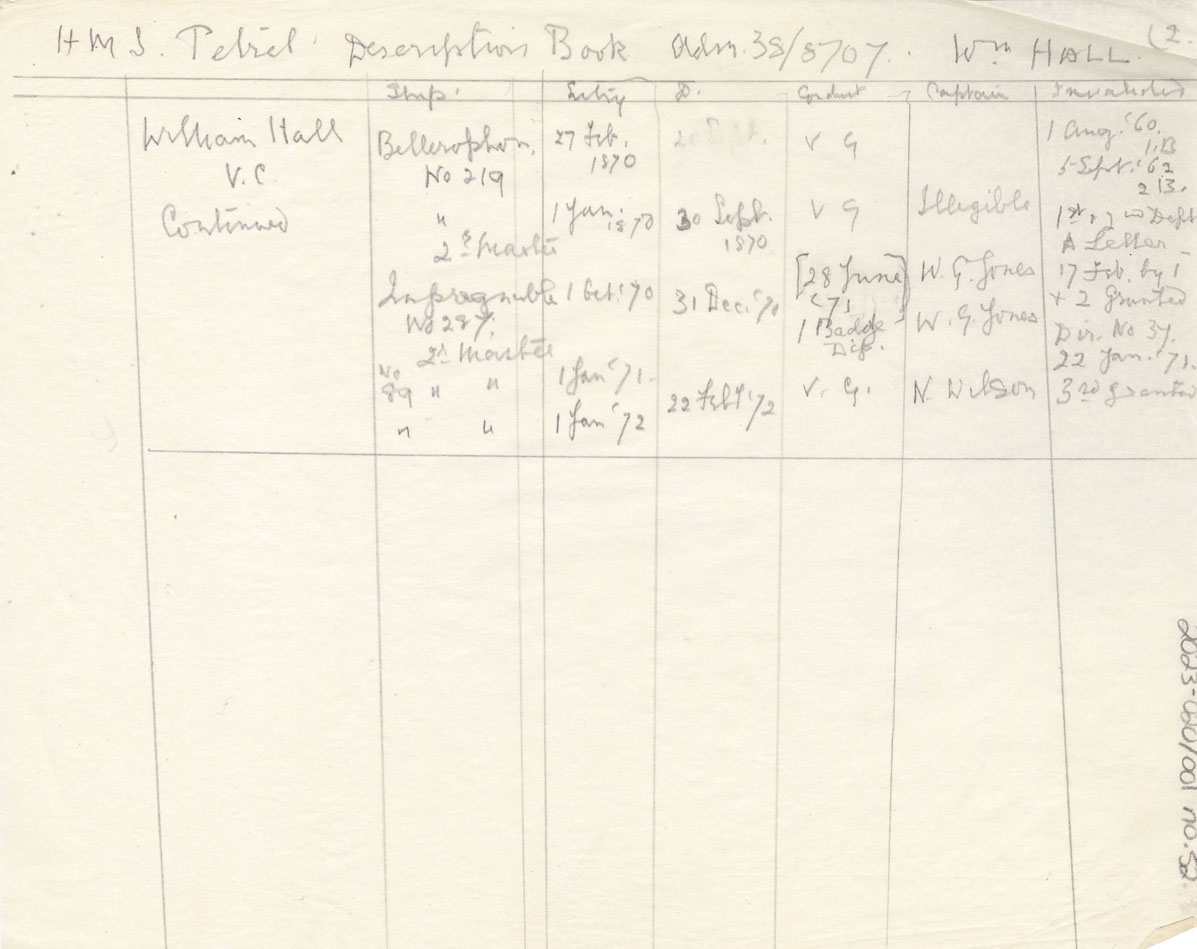 H M S. Petrel Description Book Adm. 38/8707. Wm HALL. (2.
Ship. Entry D. Conduct Captain Invalided
William Hall Bellerophon. 27 Feb. V G 1 Aug. '60.
V.C. No 219 1870 1 B
5 Sept. '62
2 B.
Continued " 1 Jan. 1870 30 Sept. 1870 V G Illegible 1st & 2 Dept
2d Master A Letter
Impregnable 1 Oct. '70 31 Dec. '70 [28 June] W. G. Jones 17 Feb. by 1
No 287. '71 + 2 Granted
1 Badge W. G. Jones Dir. No 37.
2d Master Dep. 22 Jan. '71.
No 89 " " 1 Jan '71. 22 Feby '72 V. G. N. Wilson 3rd granted
" " 1 Jan '72
2023-060/001 no. 52